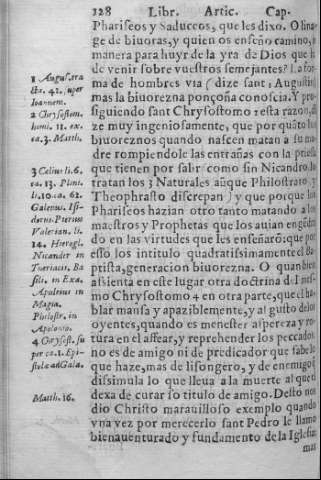 128 Libr. Artic. Cap.
Phariseos y Saduceos, que les dixo. O lina
ge de biuoras, y quien os enseño camino, i
manera para huyr de la yra de Dios que
de venir sobre vuestros semejantes? La for
ma de hombres via (dize sant Augustin)
mas la biuorezna ponçoña conoscia. Y pro
siguiendo sant Chrysostomo esta razon, di
ze muy ingeniosamente, que por quāto los
biuoreznos quando nascen matan a su ma
dre rompiendole las entrañas con la priessa
que tienen por salir como sin Nicandro lo
tratan los 3 Naturales aūque Philostrato y
Theophrasto discrepan) y que porque los
Phariseos hazian otro tanto matando a los
maestros y Prophetas que los auian engēdra
do en las virtudes que les enseñarō: que por
esso los intitulo quadratissimamente el Ba
ptista, generacion biuorezna. O quan bien
assienta en este lugar otra doctrina del mes
mo Chrysostomo 4 en otra parte, que el ha
blar mansa y apaziblemente, y al gusto de los
oyentes, quando es menester aspereza y ro
tura en el affear, y reprehender los peccados
no es de amigo ni de predicador que sabe lo
que haze, mas de lisongero, y de enemigo
dissimula lo que lleua a la muerte al que
dexa de curar so titulo de amigo. Desto nos
dio Christo marauilloso exemplo quando
vna vez por merecerlo sant Pedro le llamo
bienauenturado y fundamento de la Iglesia
mas
1 August. tra
cta. 42. super
Ioannem.
2 Chrysostom.
homi. 11. ex
ca. 3. Matth.
3 Celius li. 6.
ca. 13. Plini.
li. 10. ca. 62.
Galenus. Isi-
dorus. Pierius
Valerian. li.
14. Hierogl.
Nicander in
Theriacis. Ba
sili. in Exa.
Apuleius in
Magia.
Philostr. in
Apolonio.
4 Chrysost. su
per ca. 1. Epi-
stolæ ad Gala.
Matth. 16.